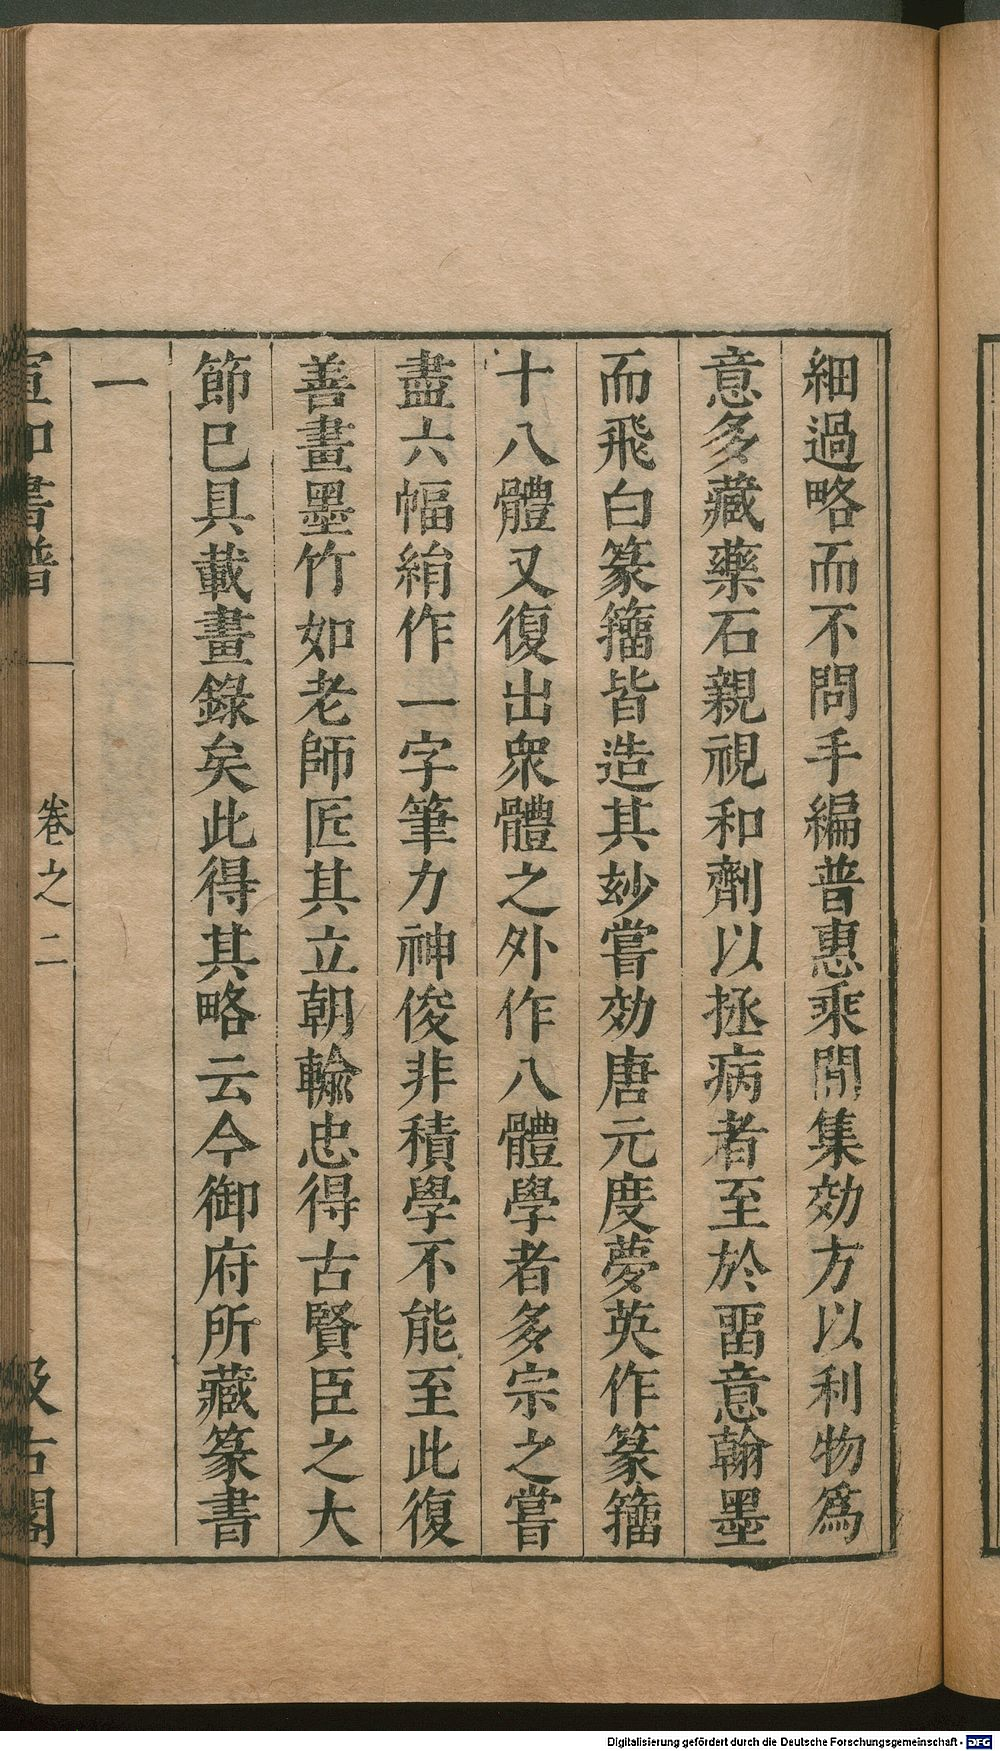 細過略而不問手編普惠乘閒集効方以利物爲
意多藏藥石親視和劑以拯病者至於畱意翰墨
而飛白篆籒皆造其玅嘗効唐元度夢英作篆籒
十八體又復出衆體之外作八體學者多宗之嘗
盡六幅絹作一字筆力神俊非積學不能至此復
善畫墨竹如老師匠其立朝輸忠得古賢臣之大
節巳具載畫錄矣此得其略云今御府所藏篆書
一
宣和書譜 卷之二 汲古閣
Digitalisierung gefördert durch die Deutsche Forschungsgemeinschaft - DFG